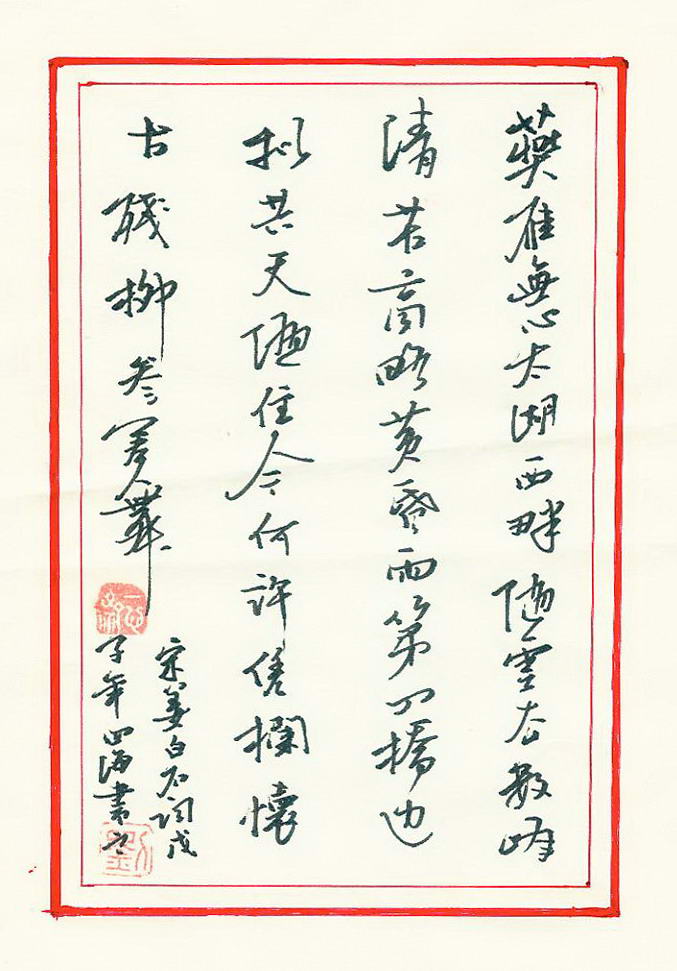 燕雁無心太湖西畔隨雲去數峰
清苦商略黃昏雨第四橋边
拟共天隨住今何許凭欄懷
古殘柳參差舞
宋姜白石詞戊
子年四海書之
劉